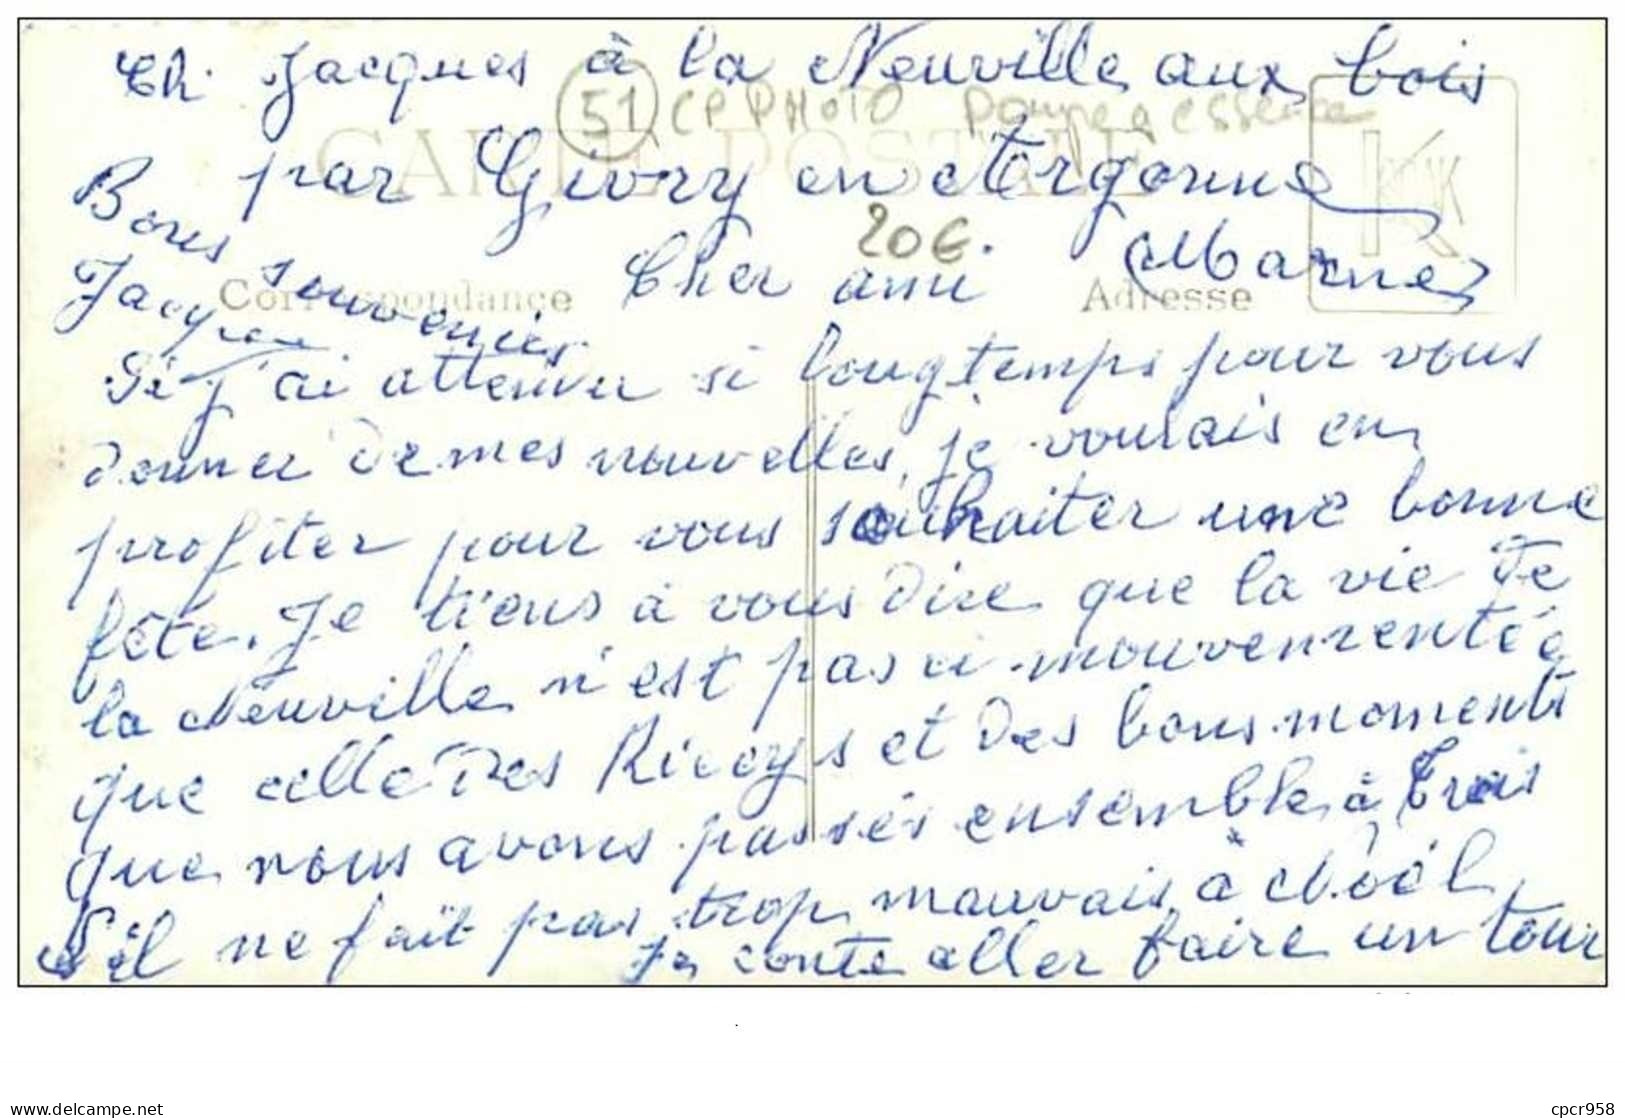 Ch. Jacques à la Neuville aux bois
51 CP PHOTO Pompe a essence
CARTE POSTALE
par Givry en Argonne
20€.
(Marne)
Bons souvenirs
Jacques
Correspondance
Cher ami
Adresse
Si j'ai attendu si longtemps pour vous
donner de mes nouvelles, je voulais en
profiter pour vous souhaiter une bonne
fête. Je tiens à vous dire que la vie de
la Neuville n'est pas si mouvementée
que celle des Riceys et des bons moments
que nous avons passés ensemble à
S'il ne fait pas trop mauvais à Noël
Je conte aller faire un tour
cpcr958